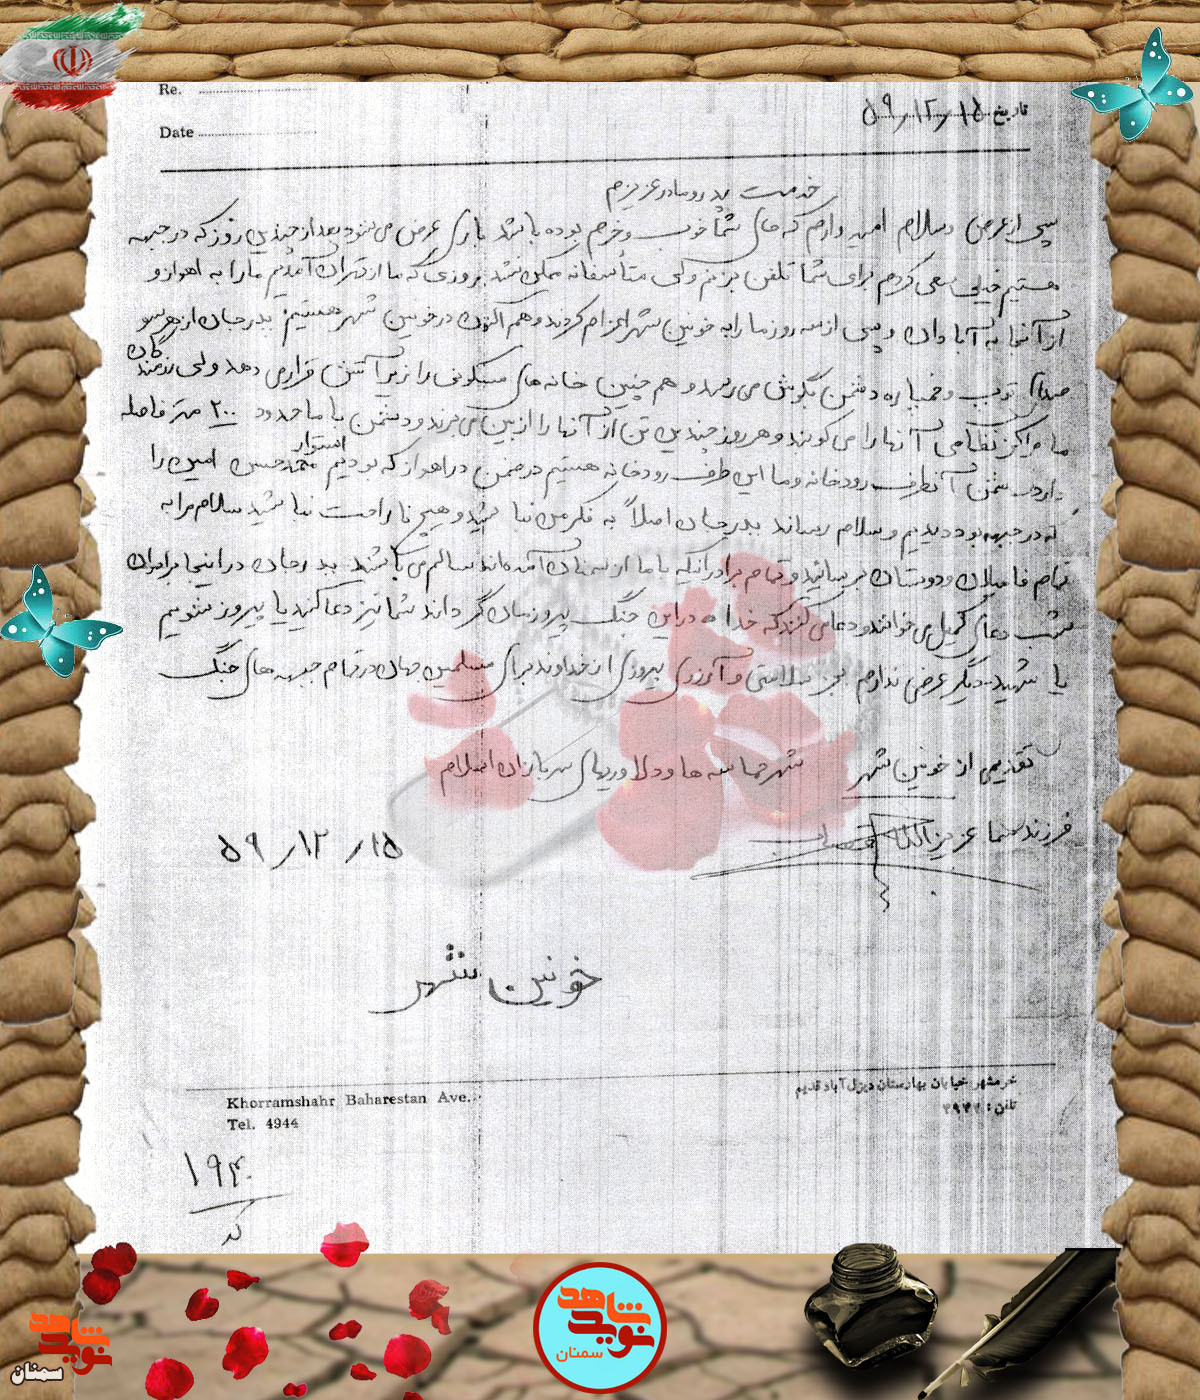 Re. ........................
Date ........................
تاریخ ۵۹/۱۲/۱۵
خدمت پدر و مادر عزیزم
پس از عرض سلام امیدوارم که حال شما خوب و خرم بوده باشد باری عرض می شود بعد از چندین روز که در جبهه
هستیم خیلی سعی کردم برای شما تلفن بزنم ولی متأسفانه ممکن نشد روزی که ما از تهران آمدیم ما را به اهواز و
از آنجا به آبادان و پس از سه روز ما را به خونین شهر اعزام کردند و هم اکنون در خونین شهر هستیم پدر جان از هر سو
صدای توپ و خمپاره دشمن بگوش می رسد و هم چنین خانه های مسکونی را زیر آتش قرار می دهد ولی رزمندگان
ما مراکز نظامی آنها را می کوبند و هر روز چندین تن از آنها را از بین می برند و دشمن با ما حدود ۲۰۰ متر فاصله
دارد دشمن آنطرف رودخانه و ما این طرف رودخانه هستیم در ضمن در اهواز که بودیم استوار محمد حسن امین را
که در جبهه بود دیدیم و سلام رساند پدر جان اصلاً به فکر من نباشید و هیچ ناراحت نباشید سلام مرا به
تمام فامیلان و دوستان برسانید و تمام برادرانیکه با ما از سمنان آمده اند سالم می باشند پدر جان در اینجا برادران
شب دعای کمیل می خوانند و دعا می کنند که خدا در این جنگ پیروزمان گرداند شما نیز دعا کنید یا پیروز بشویم
یا شهید دیگر عرضی ندارم بجز سلامتی و آرزوی پیروزی از خداوند برای مسلمین جهان در تمام جبهه های جنگ
تقدیمی از خونین شهر شهر حماسه ها و دلاوریهای سربازان اسلام
فرزند شما عزیزالله
۵۹/۱۲/۱۵
خونین شهر
خرمشهر خیابان بهارستان دیزل آباد قدیم
Khorramshahr Baharestan Ave.
تلفن:
Tel. 4944
۱۹۴۰
کد
نوید شاهد
سمنان
نوید شاهد
سمنان